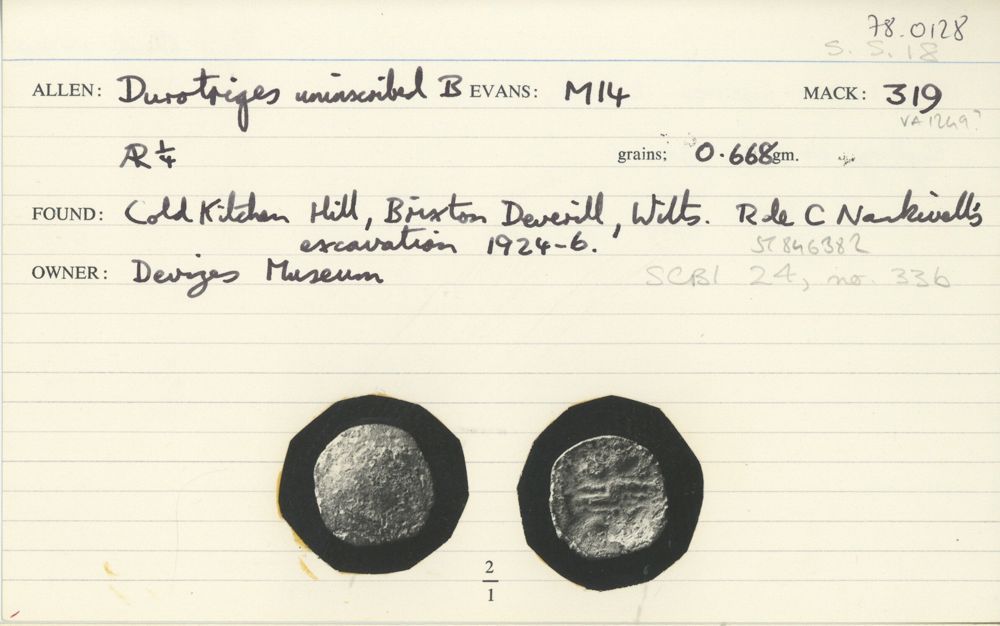 78.0128
S. S. 18
ALLEN: Durotriges uninscribed B EVANS: M14 MACK: 319
VA 1249?
AR ¼ grains; 0.668 gm.
FOUND: Cold Kitchen Hill, Brixton Deverill, Wilts. R de C Nankivell's
excavation 1924-6. ST 846382
OWNER: Devizes Museum SCBI 24, no. 336
2
1